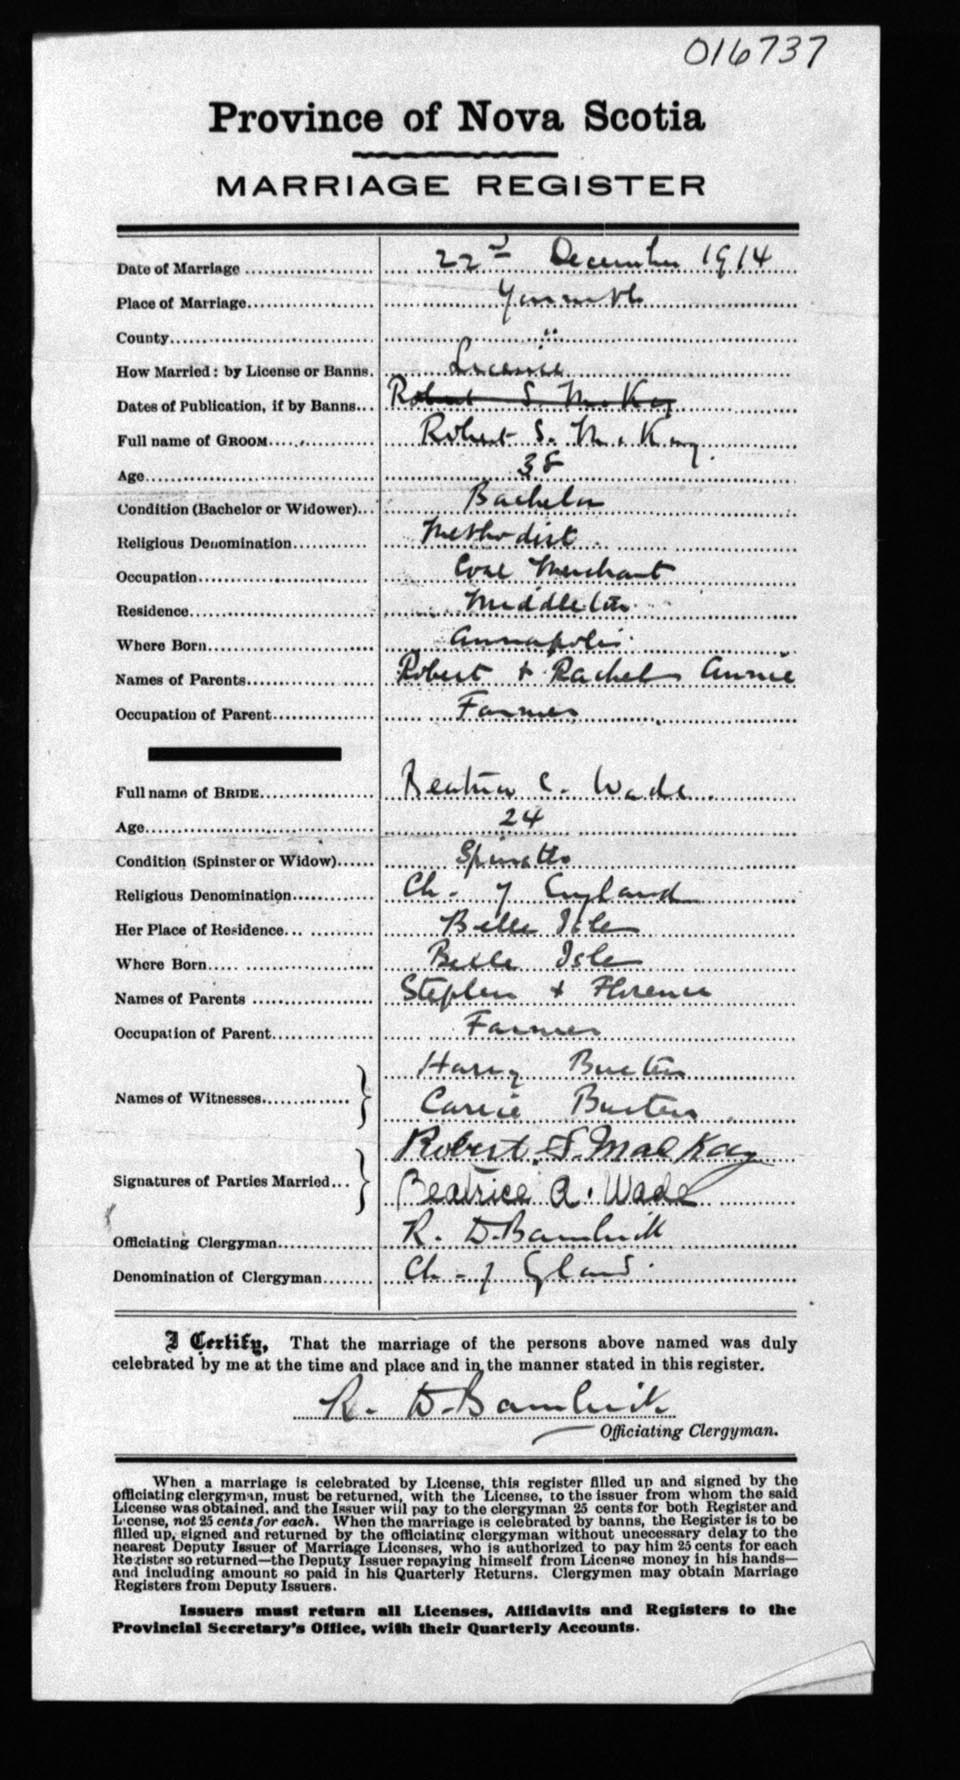 016737
Province of Nova Scotia
MARRIAGE REGISTER
Date of Marriage .................... 22nd December 1914
Place of Marriage.................... Yarmouth
County.................... "
How Married: by License or Banns. License
Dates of Publication, if by Banns... Robert S. McKay
Full name of GROOM.................... Robert S. McKay.
Age.................... 38
Condition (Bachelor or Widower)... Bachelor
Religious Denomination............ Methodist
Occupation.................... Coal Merchant
Residence.................... Middleton
Where Born.................... Annapolis
Names of Parents.................... Robert + Rachel Annie
Occupation of Parent............... Farmer
Full name of BRIDE.................... Beatrice C. Wade
Age.................... 24
Condition (Spinster or Widow)...... Spinster
Religious Denomination............ Ch. of England
Her Place of Residence... ........... Belle Isle
Where Born.... .................... Belle Isle
Names of Parents .................... Stephen + Florence
Occupation of Parent............... Farmer
Names of Witnesses............... Harry
Carrie
Signatures of Parties Married... Robert S. MacKay
Beatrice A. Wade
Officiating Clergyman............... R. D. Bambrick
Denomination of Clergyman........ Ch. of England
I Certify, That the marriage of the persons above named was duly
celebrated by me at the time and place and in the manner stated in this register.
R. D. Bambrick
Officiating Clergyman.
When a marriage is celebrated by License, this register filled up and signed by the
officiating clergyman, must be returned, with the License, to the issuer from whom the said
License was obtained, and the Issuer will pay to the clergyman 25 cents for both Register and
License, not 25 cents for each. When the marriage is celebrated by banns, the Register is to be
filled up, signed and returned by the officiating clergyman without unecessary delay to the
nearest Deputy Issuer of Marriage Licenses, who is authorized to pay him 25 cents for each
Register so returned—the Deputy Issuer repaying himself from License money in his hands—
and including amount so paid in his Quarterly Returns. Clergymen may obtain Marriage
Registers from Deputy Issuers.
Issuers must return all Licenses, Affidavits and Registers to the
Provincial Secretary's Office, with their Quarterly Accounts.